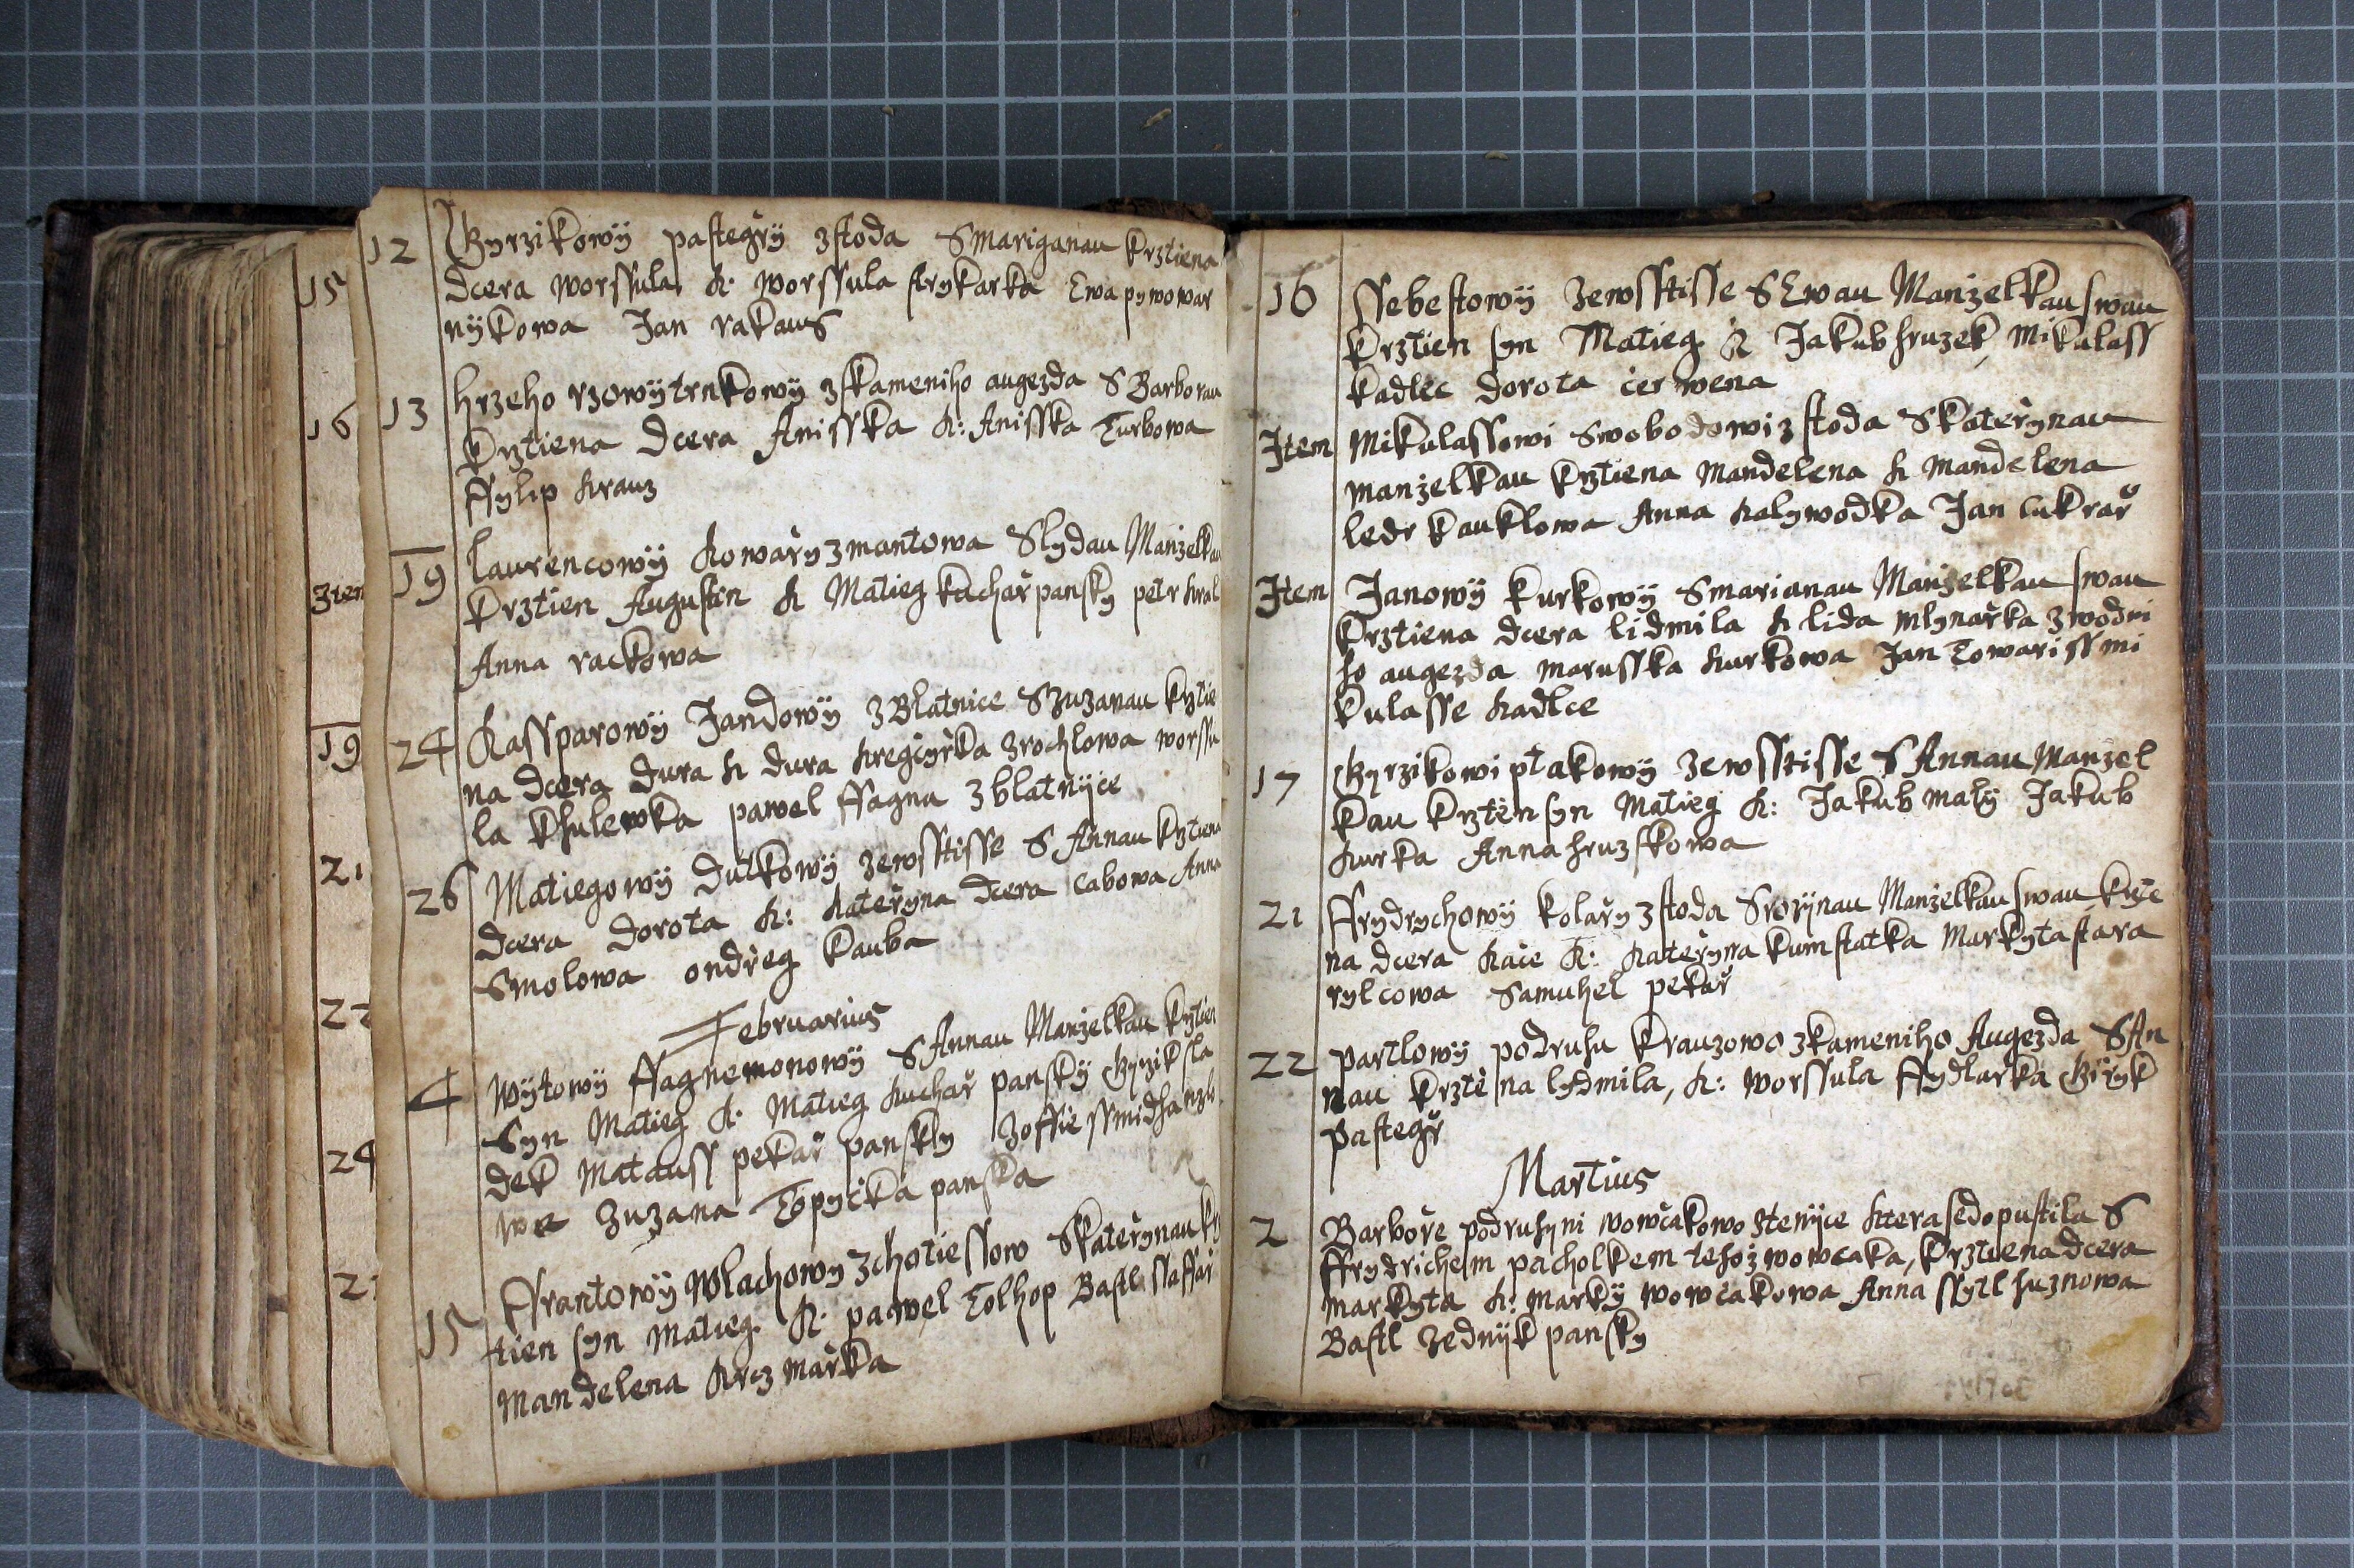 15
16
Item
19
21
22
24
12 Gyrzikowÿ pastegřÿ z stoda S Mariganau krztiena
dcera worssula, K: worssula strykarka Ewa pywowar
nÿkowa Jan rakaus
13 hrzehorzowÿ trnkowÿ z kameniho augezda S Barborau
krztiena dcera Anisska K: Anisska Turbowa
ffylip Krauz
19 Laurencowÿ kowařy z mantowa S lydau Manzelkau
krztien Augustin K Matieg kuchař pansky petr kral
Anna rackowa
24 Kassparowÿ Jandowÿ z Blatnice S zuzanau krztie
na dcera Dura K dura kregčyřka z rochlowa worssu
la khulewka pawel ffagna z blatnÿce
26 Matiegowÿ Dulkowÿ ze wsstisse S Annau krztiena
dcera dorota K: kateřyna dcera cabowa Anna
Smolowa ondřeg kauba
Februarius
4 Wÿtowÿ ffagnemonowÿ S Annau Manzelkau krztien
Syn Matieg K: Matieg kuchař panskÿ Gyrzik sla
dek Matauss pekař pansky zoffie ssmidhanzlo
we zuzana Topyčka panska
15 ffrantowÿ Wlachowy z chotiessow S kateřynau krz
tien syn Matieg. K: pawel Tolhop Bastl ssaffař
Mandelena krczmařka
16 ssebestowÿ ze wsstisse S Ewau Manzelkau swau
krztien syn Matieg K Jakub hruzek, Mikulass
kadlec dorota čerwena
Item Mikulassowi Swobodowi z stoda S kateřynau
manzelkau krztiena Mandelena K Mandelena
leder kauklowa Anna kalywodka Jan cukrař
Item Janowÿ kurkowÿ S marianau Manzelkau swau
krztiena dcera lidmila K lida mlynařka z wodni
ho augezda marusska kurkowa Jan Towariss mi
kulasse kadlce
17 Gyrzikowi ptakowÿ ze wsstisse S Annau Manzel
kau krzten syn Matieg K: Jakub malÿ Jakub
kurka Anna hruzskowa
21 ffrydrychowÿ kolařy z stoda S rozÿnau Manzelkau swau krztě
na dcera kače K: kateřyna kumstatka Markyta stara
rylcowa Samuhel pekař
22 partlowÿ podruhu krauzowo z kameniho Augezda S An
nau krztěna lydmila, K: worssula ffydlarka Giřyk
pastegř
Martius
2 Barboře podruhyni wowčakowo z tenÿce ktera se dopustila S
ffrydrichem pacholkem tehoz wowcaka, krztiena dcera
markyta K: markÿ wowčakowa Anna ssytlhuznowa
Bastl zednÿk pansky